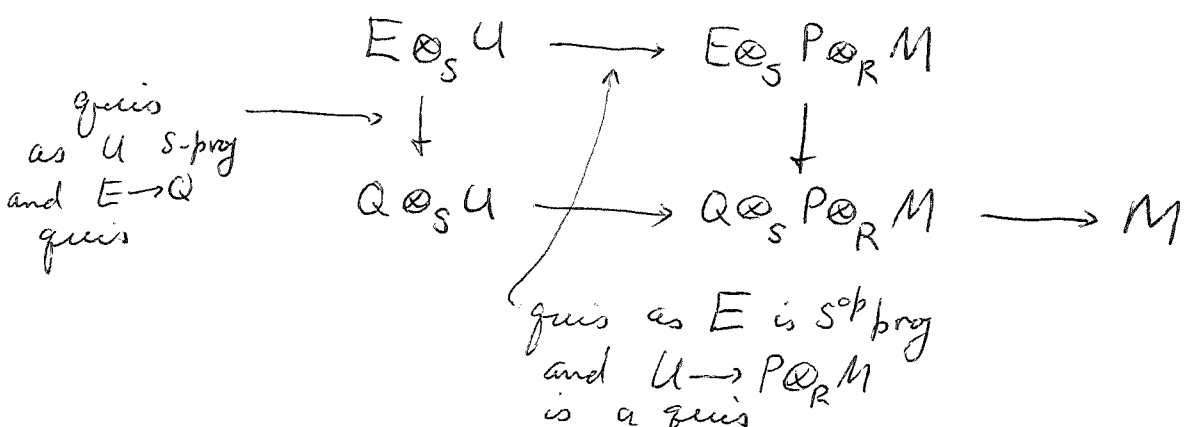 E⊗_S U ⟶ E⊗_S P⊗_R M
quis
as U S-proj
and E→Q
quis
Q⊗_S U ⟶ Q⊗_S P⊗_R M ⟶ M
quis as E is S^op proj
and U→P⊗_R M
is a quis